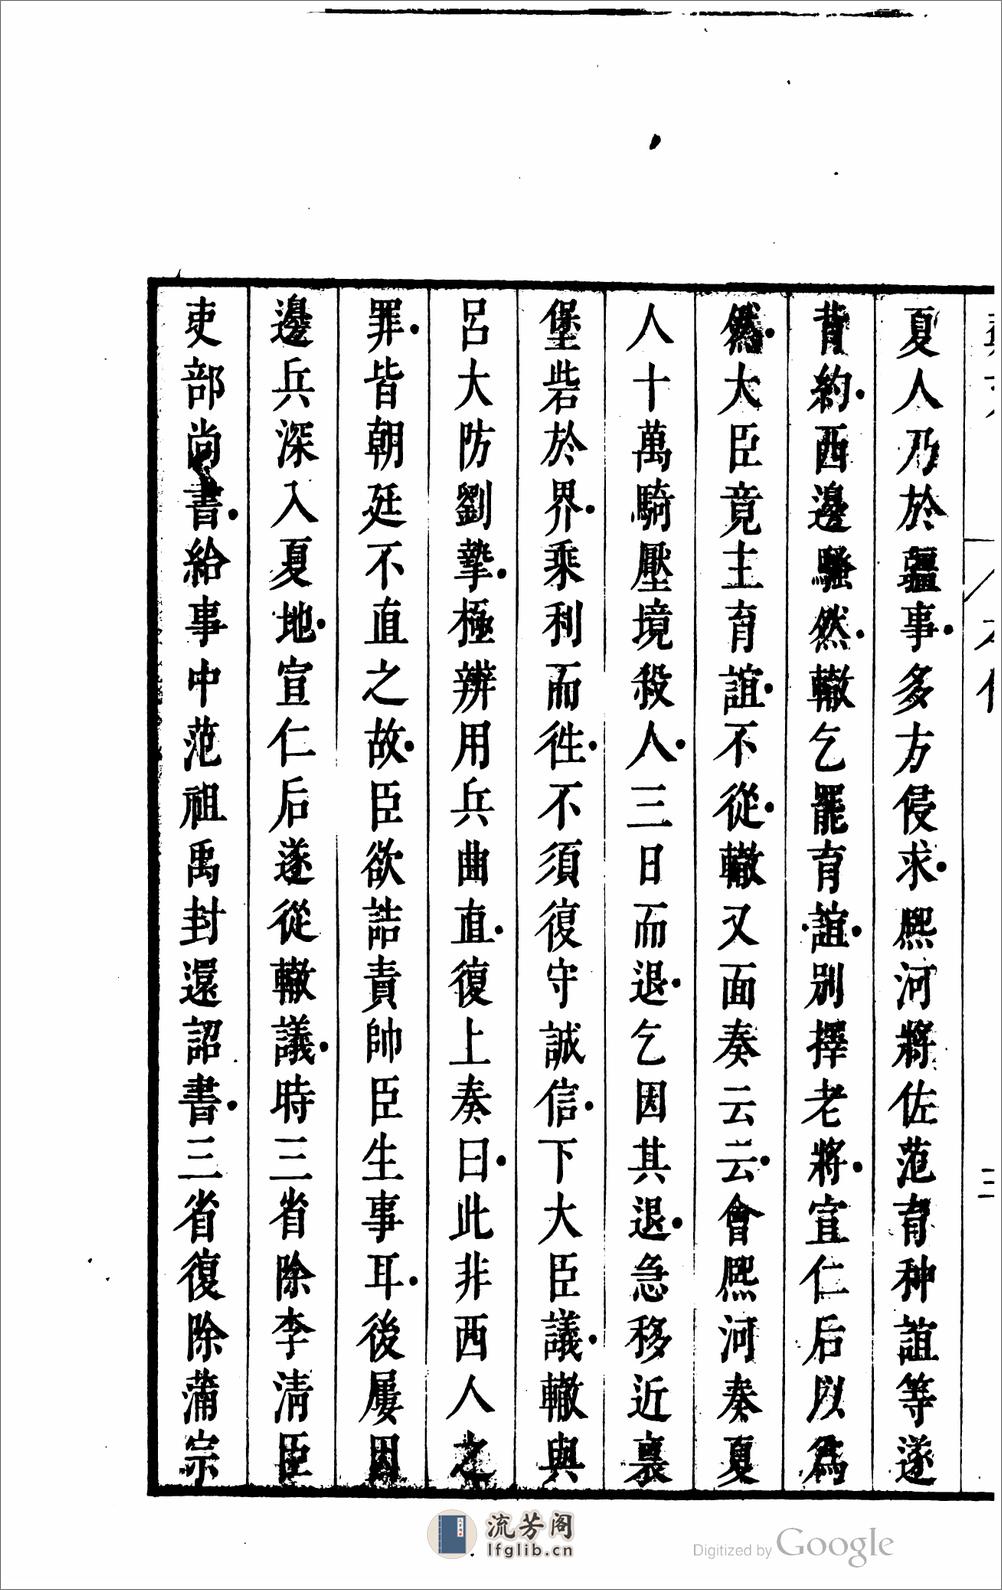 夏人乃於疆事多方侵求熙河將佐范育种誼等遂
背約西邊騷然轍乞罷育誼別擇老將宣仁后以為
然大臣竟主育誼不從轍又面奏云云會熙河奏夏
人十萬騎壓境殺人三日而退乞因其退急移近裏
堡砦於界乘利而徃不須復守誠信下大臣議轍與
呂大防劉摯極辨用兵曲直復上奏曰此非西人之
罪皆朝廷不直之故臣欲詰責帥臣生事耳後屢因
邊兵深入夏地宣仁后遂從轍議時三省除李清臣
吏部尚書給事中范祖禹封還詔書三省復除蒲宗
流芳阁
lfglib.cn
Digitized by Google